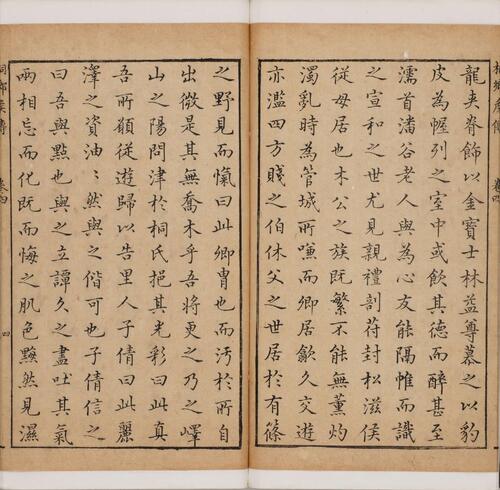 龍夾脊飾以金寶士林益尊慕之以豹
皮為幄列之室中或飲其德而醉甚至
濡首潘谷老人與為心友能隔帷而識
之宣和之世尤見親禮剖苻封松滋侯
從母居也木公之族既繁不能無薰灼
濁亂時為管城所嗛而卿居歙久交遊
亦濫四方賤之伯休父之世居於有篠
之野見而愾曰此卿胄也而汚於所自
出微是其無喬木乎吾將更之乃之嶧
山之陽問津於桐氏挹其光彩曰此真
吾所願從遊歸以告里人子倩曰此麗
澤之資油〻然與之偕可也子倩信之
曰吾與點也與之立譚久之盡吐其氣
兩相忘而化既而悔之肌色黝然見濕
卷四
四